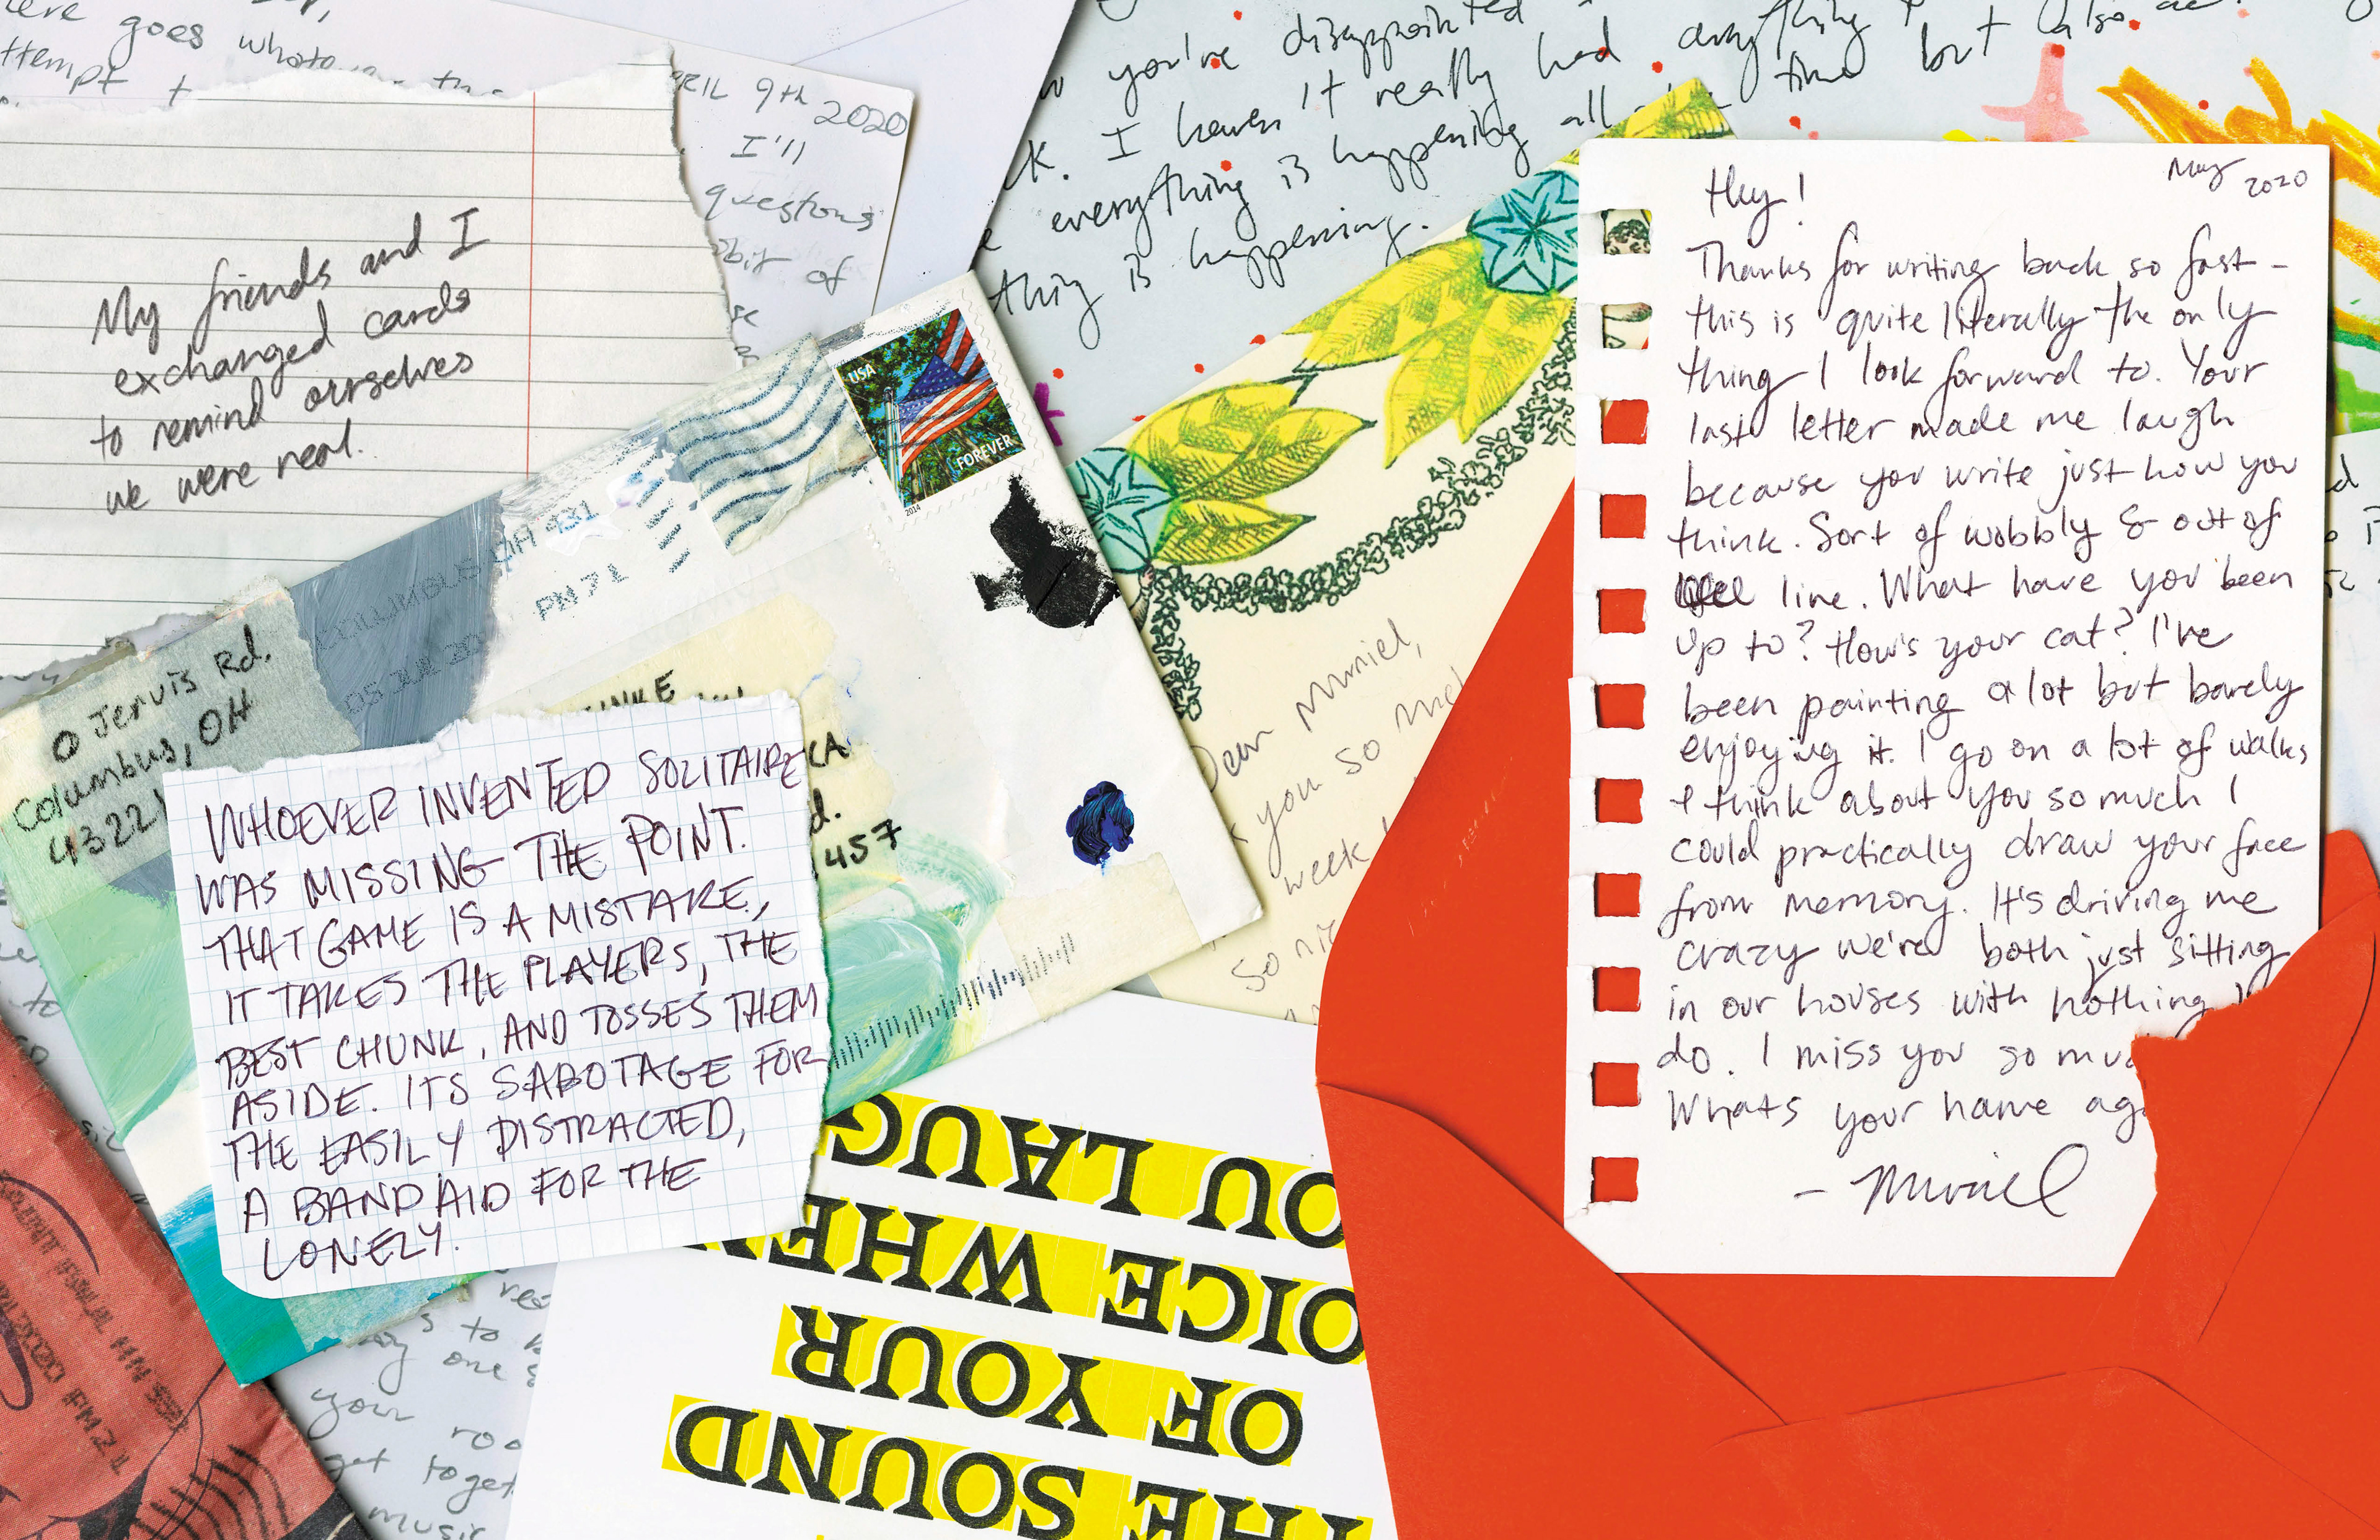 ere goes
ttempt t
RIL 9th
2020
I'll
questions
bit of
My friends and I
exchanged cards
to remind ourselves
we were real.
you're disappointed
ck. I haven't really had anything
everything is happening all time but also
thing is happening.
USA
FOREVER
2014
COLUMBUS OH 431
PM 7 1
05 JUL 20
Jervis Rd.
Columbus, OH
43221
NKE
CA
d.
457
WHOEVER INVENTED SOLITAIRE
WAS MISSING THE POINT.
THAT GAME IS A MISTAKE,
IT TAKES THE PLAYERS, THE
BEST CHUNK, AND TOSSES THEM
ASIDE. ITS SABOTAGE FOR
THE EASILY DISTRACTED,
A BAND AID FOR THE
LONELY.
Dear Muriel,
k you so muc
week
So ni
May 2020
Hey!
Thanks for writing back so fast –
this is quite literally the only
thing I look forward to. Your
last letter made me laugh
because you write just how you
think. Sort of wobbly & out of
line. What have you been
up to? How's your cat? I've
been painting a lot but barely
enjoying it. I go on a lot of walks
& think about you so much I
could practically draw your face
from memory. It's driving me
crazy we're both just sitting
in our houses with nothing
do. I miss you so muc
Whats your name aga
– Muriel
THE SOUND
OF YOUR
OICE WHEN
OU LAUG
your roo
get toget
music